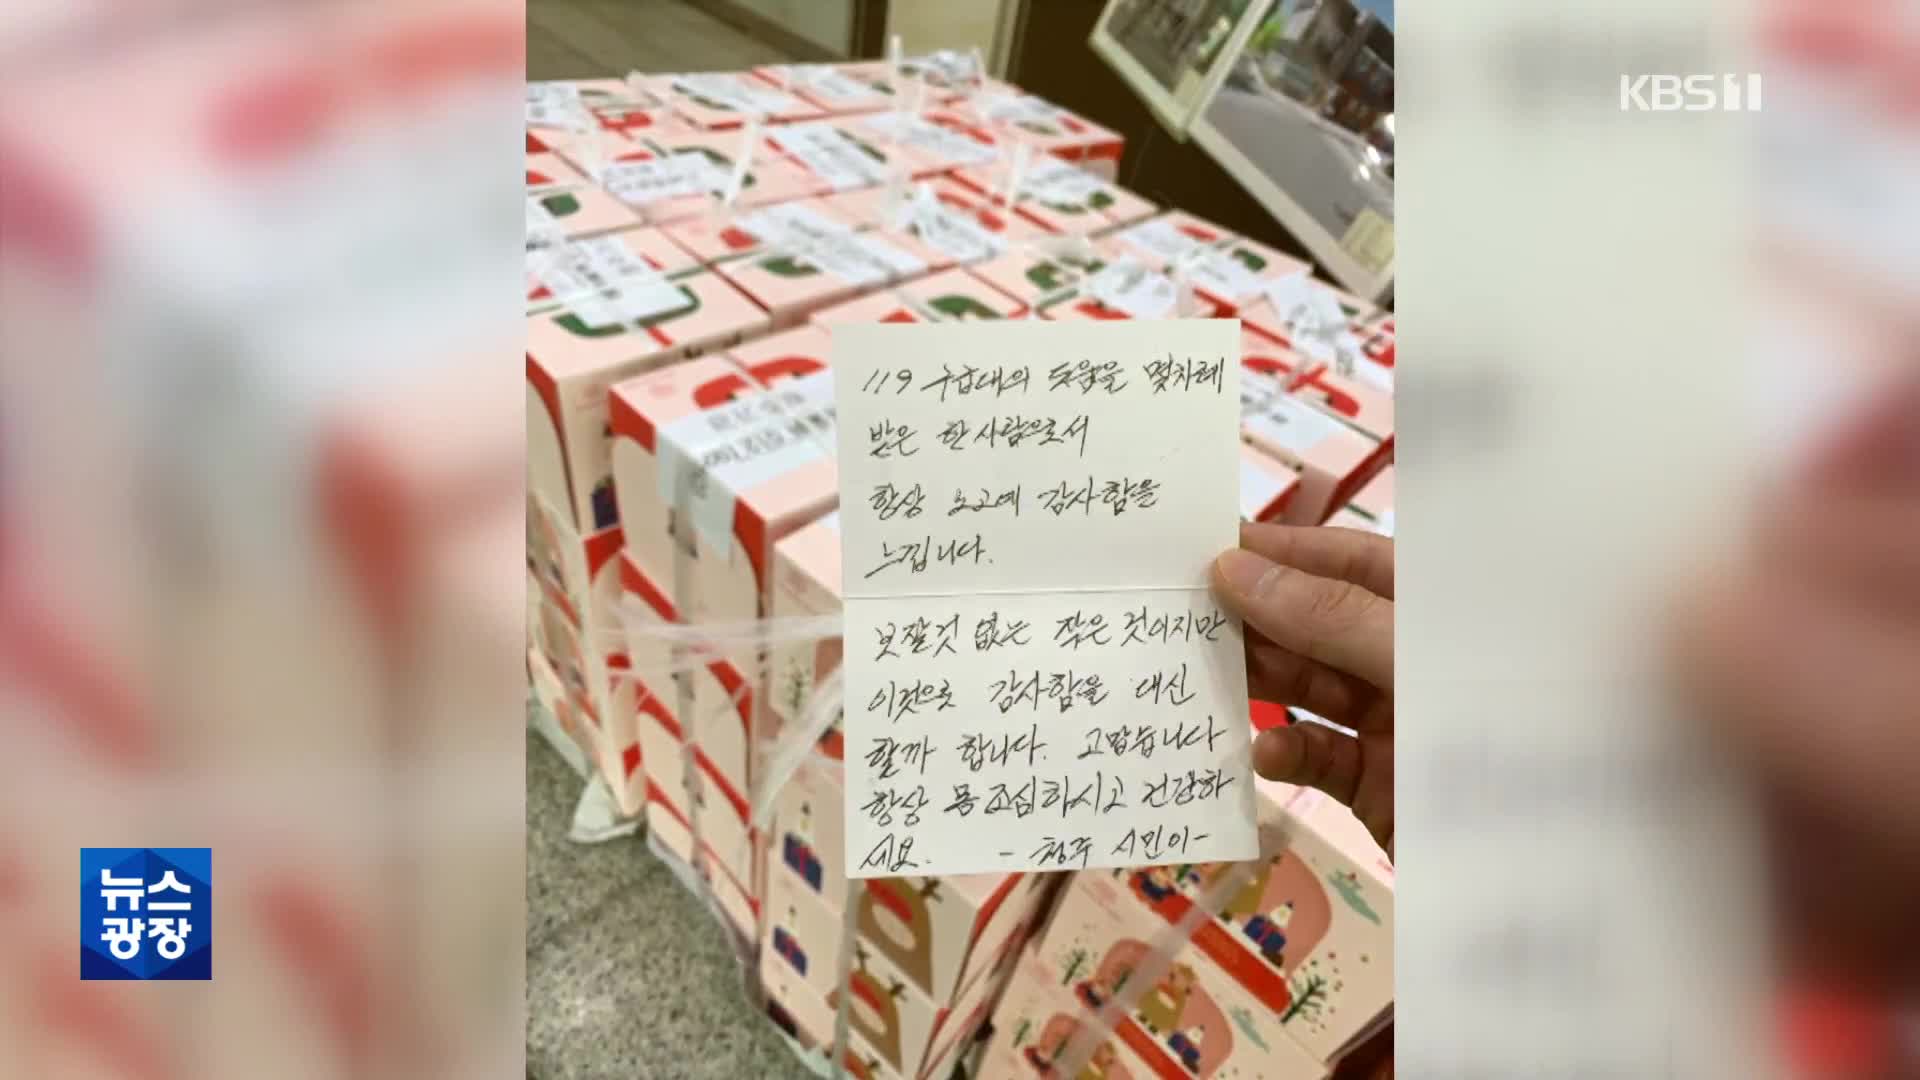 KBS 1
119 구급대의 도움을 몇차례
받은 한 사람으로서
항상 노고에 감사함을
느낍니다.
보잘것 없는 작은 것이지만
이것으로 감사함을 대신
할까 합니다. 고맙습니다
항상 몸 조심하시고 건강하
세요. - 청주 시민이-
뉴스
광장